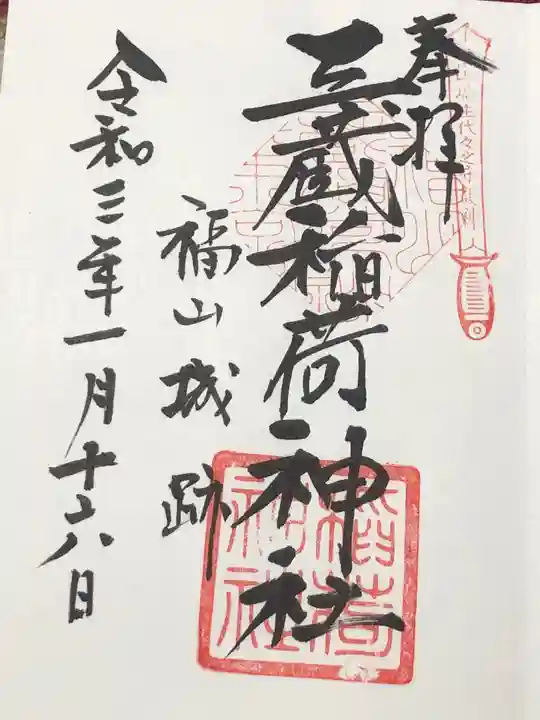 奉拝
三蔵稲荷神社
福山城跡
令和三年一月十六日
稲荷
神社